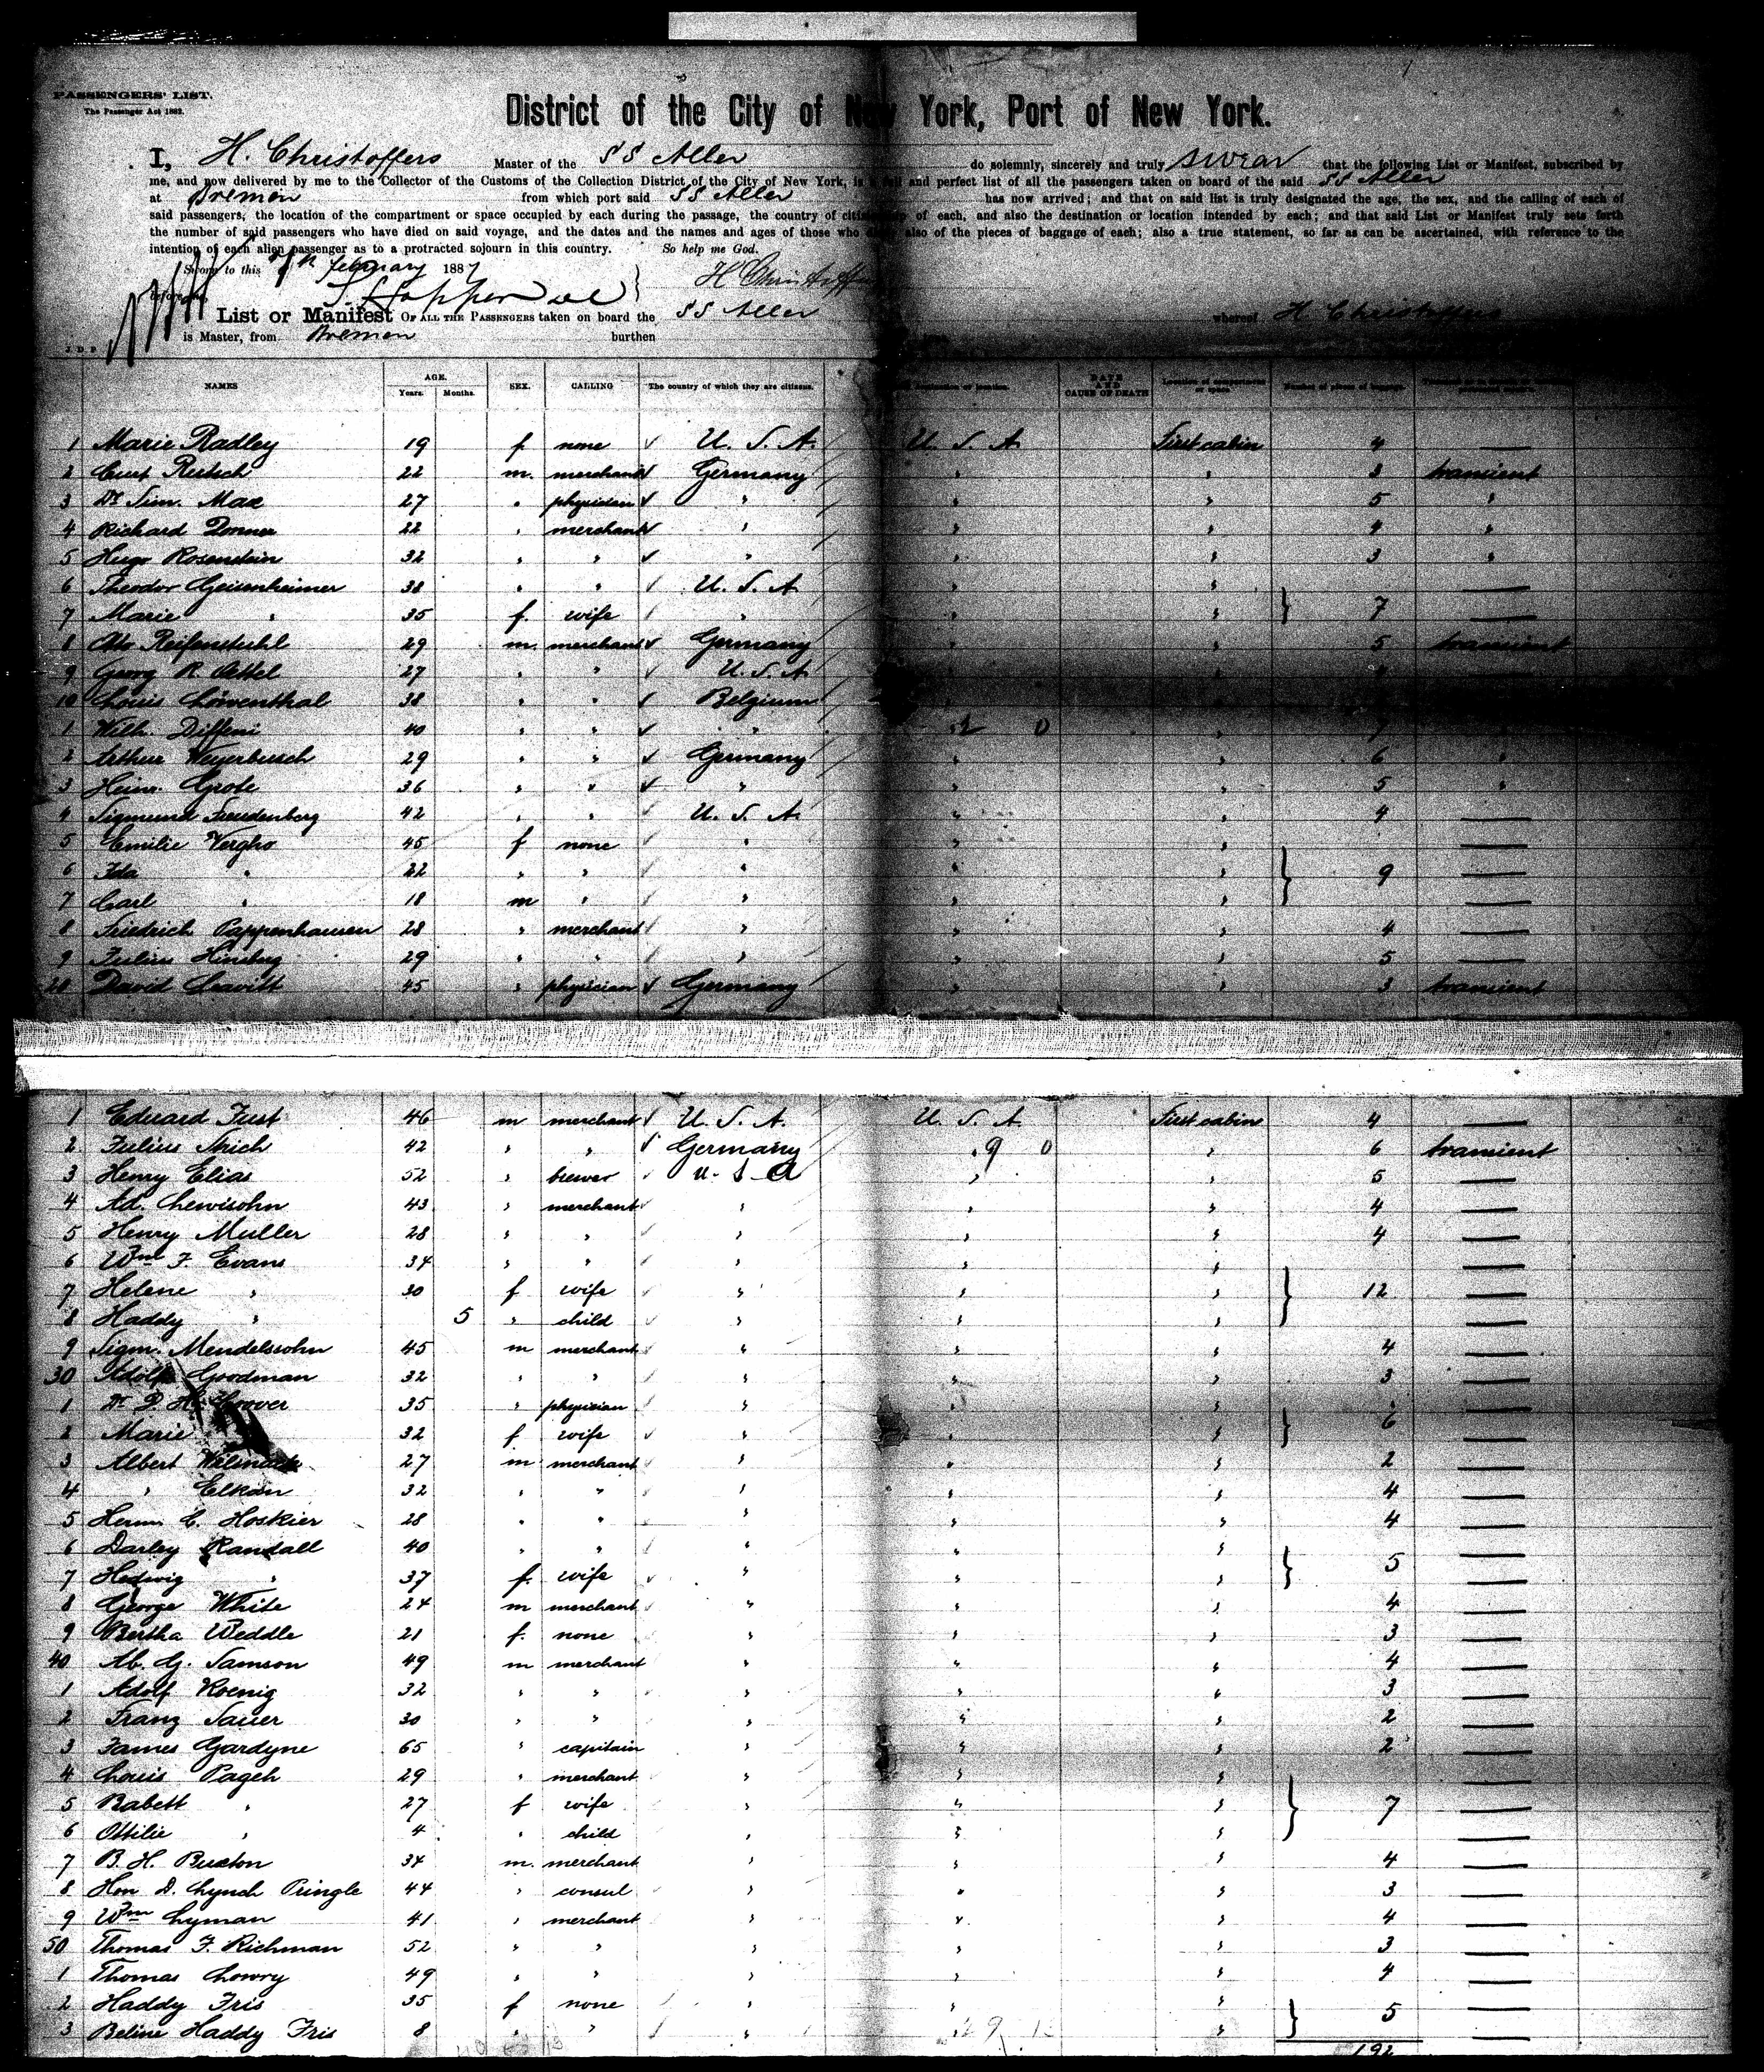 PASSENGERS' LIST.
The Passenger Act 1882.
District of the City of New York, Port of New York.
I, H. Christoffers Master of the SS Aller do solemnly, sincerely and truly swear that the following List or Manifest, subscribed by
me, and now delivered by me to the Collector of the Customs of the Collection District of the City of New York, is a full and perfect list of all the passengers taken on board of the said SS Aller
at Bremen from which port said SS Aller has now arrived; and that on said list is truly designated the age, the sex, and the calling of each of
said passengers, the location of the compartment or space occupied by each during the passage, the country of citizenship of each, and also the destination or location intended by each; and that said List or Manifest truly sets forth
the number of said passengers who have died on said voyage, and the dates and the names and ages of those who died; also of the pieces of baggage of each; also a true statement, so far as can be ascertained, with reference to the
intention of each alien passenger as to a protracted sojourn in this country. So help me God.
Sworn to this February 1887 H Christoffers
List or Manifest OF ALL THE PASSENGERS taken on board the SS Aller whereof H Christoffers
is Master, from Bremen burthen
NAMES AGE. Years. Months. SEX. CALLING The country of which they are citizens. DATE AND CAUSE OF DEATH Location of compartment or space. Number of pieces of baggage.
1 Marie Radley 19 f none U. S. A. U. S. A. First cabin 4 —
2 Curt 22 m. merchant Germany " " 3 transient
3 Dr. Sim. Max 27 " physician " " " 5 "
4 Richard 22 " merchant " " " 4 "
5 Hugo Rosenstein 32 " " " " " 3 "
6 Theodor Geisenheimer 38 " " U. S. A. " " —
7 Marie " 35 f. wife " " " 7 —
8 Otto Reifenstuhl 29 m. merchant Germany " " 5 transient
9 Georg R. 27 " " U. S. A. " "
10 Louis Löwenthal 38 " " Belgium
1 Wilh. Diffeni 40 " " "
2 Arthur Weyerbusch 29 " " Germany " " 6 "
3 Heinr. Grote 36 " " " " " 5 "
4 Sigmund Freudenberg 42 " " U. S. A. " " 4 —
5 Emilie Vergho 45 f none " " " —
6 Ida " 22 " " " " " 9 —
7 Carl " 18 m " " " " —
8 Friedrich Pappenhausen 28 " merchant " " " 4 —
9 Julius 29 " " " " " 5 —
20 David Leavitt 45 " physician Germany " " 3 transient
1 Eduard Fust 46 m merchant U. S. A. U. S. A. First cabin 4 —
2 Julius 42 " " Germany " 9 0 " 6 transient
3 Henry Elias 52 " brewer U. S. A " " 5 —
4 Ad. Lewisohn 43 " merchant " " " 4 —
5 Henry Muller 28 " " " " " 4 —
6 Wm F. Evans 34 " " " " " —
7 Helene " 30 f wife " " " 12 —
8 Haddy " 5 " child " " " —
9 Sigm. Mendelssohn 45 m merchant " " " 4 —
30 Adolf Goodman 32 " " " " " 3 —
1 Dr. D. H. 35 " physician " " " —
2 Marie 32 f wife " " " 6 —
3 Albert 27 m merchant " " " 2 —
4 " Elkan 32 " " " " " 4 —
5 Herm. C. Hoskier 28 " " " " " 4 —
6 Darley Randall 40 " " " " " —
7 Hedwig " 37 f. wife " " " 5 —
8 George White 24 m merchant " " " 4 —
9 Bertha Weddle 21 f. none " " " 3 —
40 Ab. G. Samson 49 m merchant " " " 4 —
1 Adolf Koenig 32 " " " " " 3 —
2 Franz Sauer 30 " " " " " 2 —
3 James Gardyne 65 " capitain " " " 2 —
4 Louis Pageh 29 " merchant " " " —
5 Babett " 27 f wife " " " 7 —
6 Ottilie " 4 " child " " " —
7 B. H. Buxton 34 m. merchant " " " 4 —
8 Hon D. Lynch Pringle 44 " consul " " " 3 —
9 Wm Lyman 41 " merchant " " " 4 —
50 Thomas F. Richman 52 " " " " " 3 —
1 Thomas Lowry 49 " " " " " 4 —
2 Haddy Fris 35 f none " " " —
3 Beline Haddy Fris 8 " " " " " 5 —
192